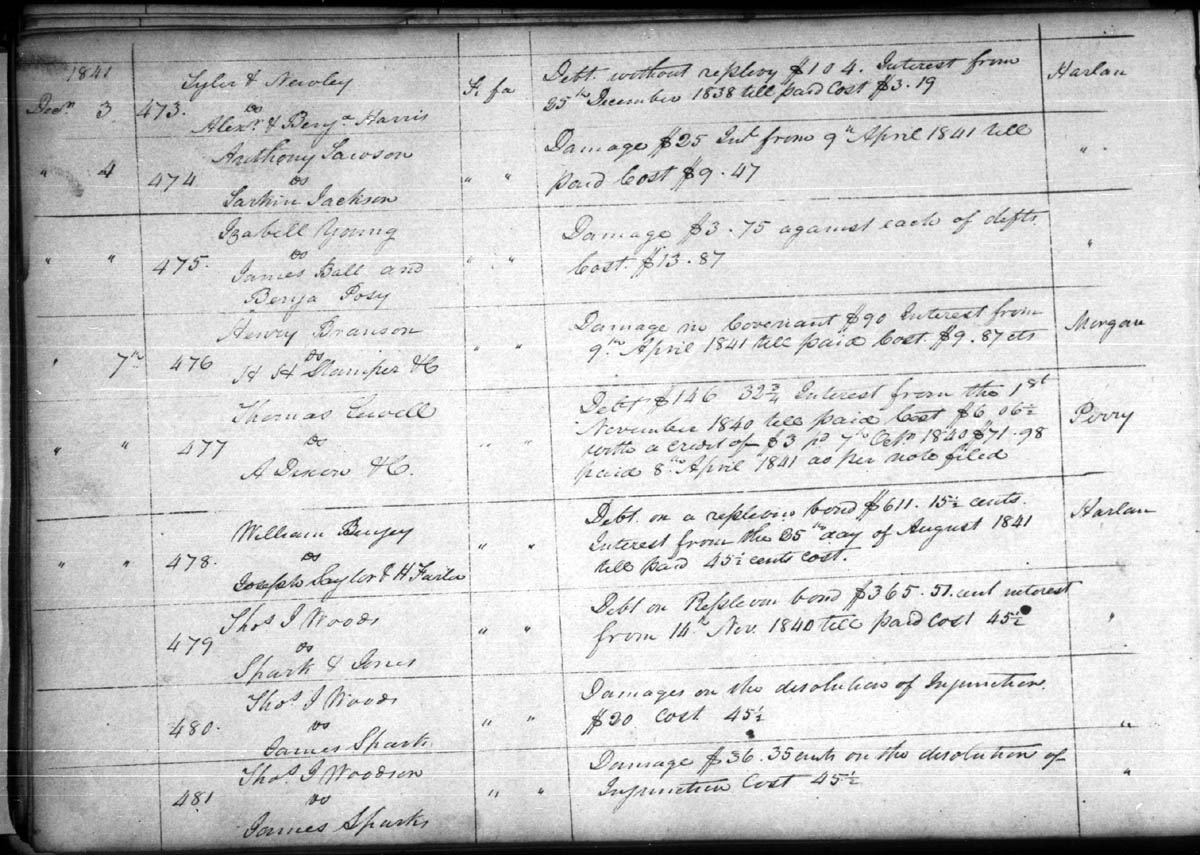 1841
Tyler & Newley
Decr. 3 473. vs Fi fa Debt without replevy $104. Interest from Harlan
Alexr. & Benja. Harris 25th December 1838 till paid Cost $3.19
Anthony Lawson Damage $25 Int from 9th April 1841 till
" 4 474 vs " " paid Cost $9.47 "
Larkin Jackson
Izabell Young Damage $3.75 against each of defts.
" " 475. vs " " Cost. $13.87 "
James Ball and
Benja Posy
Henry Branson Damage in Covenant $90 Interest from Morgan
" 7th 476 vs " " 9th April 1841 till paid Cost. $9.87 cts
H H Stamper & C
Thomas Debt $146 32¾ Interest from the 1st
November 1840 till paid Cost $6 06½ Perry
" " 477 vs " " with a credit of $3 pd 7th Octr. 1840 $71.98
A Dixon & C. paid 8th April 1841 as per note filed
William Debt. on a replevin bond $611. 15½ cents. Harlan
" " 478. vs " " Interest from the 25th day of August 1841
Joseph Saylor & H till paid 45½ cents cost.
Thos. J Woods Debt on Replevin bond $365.51. cent interest
479 vs " " from 14th Nov. 1840 till paid Cost 45½ "
Spark & Jones
Thos. J Woods Damages on the disolution of Injunction.
480. vs " " $20 Cost 45½ "
James Spark
Thos. J Woodson Damage $36.35 cents on the disolution of
481 vs " " Injunction Cost 45½ "
James Sparks